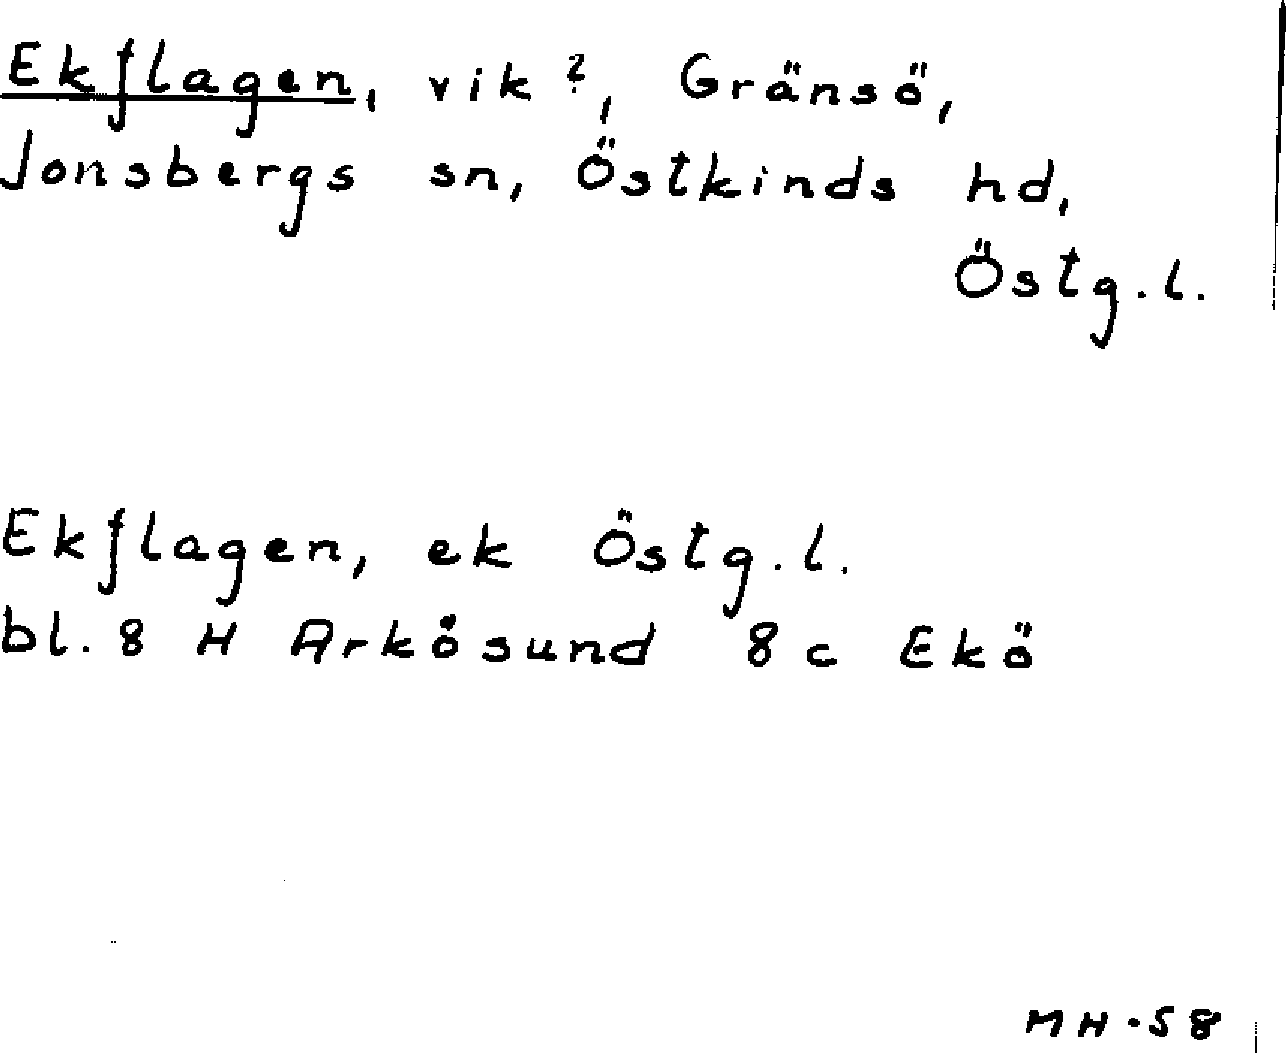 Ekflagen, vik?, Gränsö,
Jonsbergs sn, Östkinds hd,
Östg.l.
Ekflagen, ek Östg.l.
bl. 8 H Arkösund 8c Ekö
MH-58